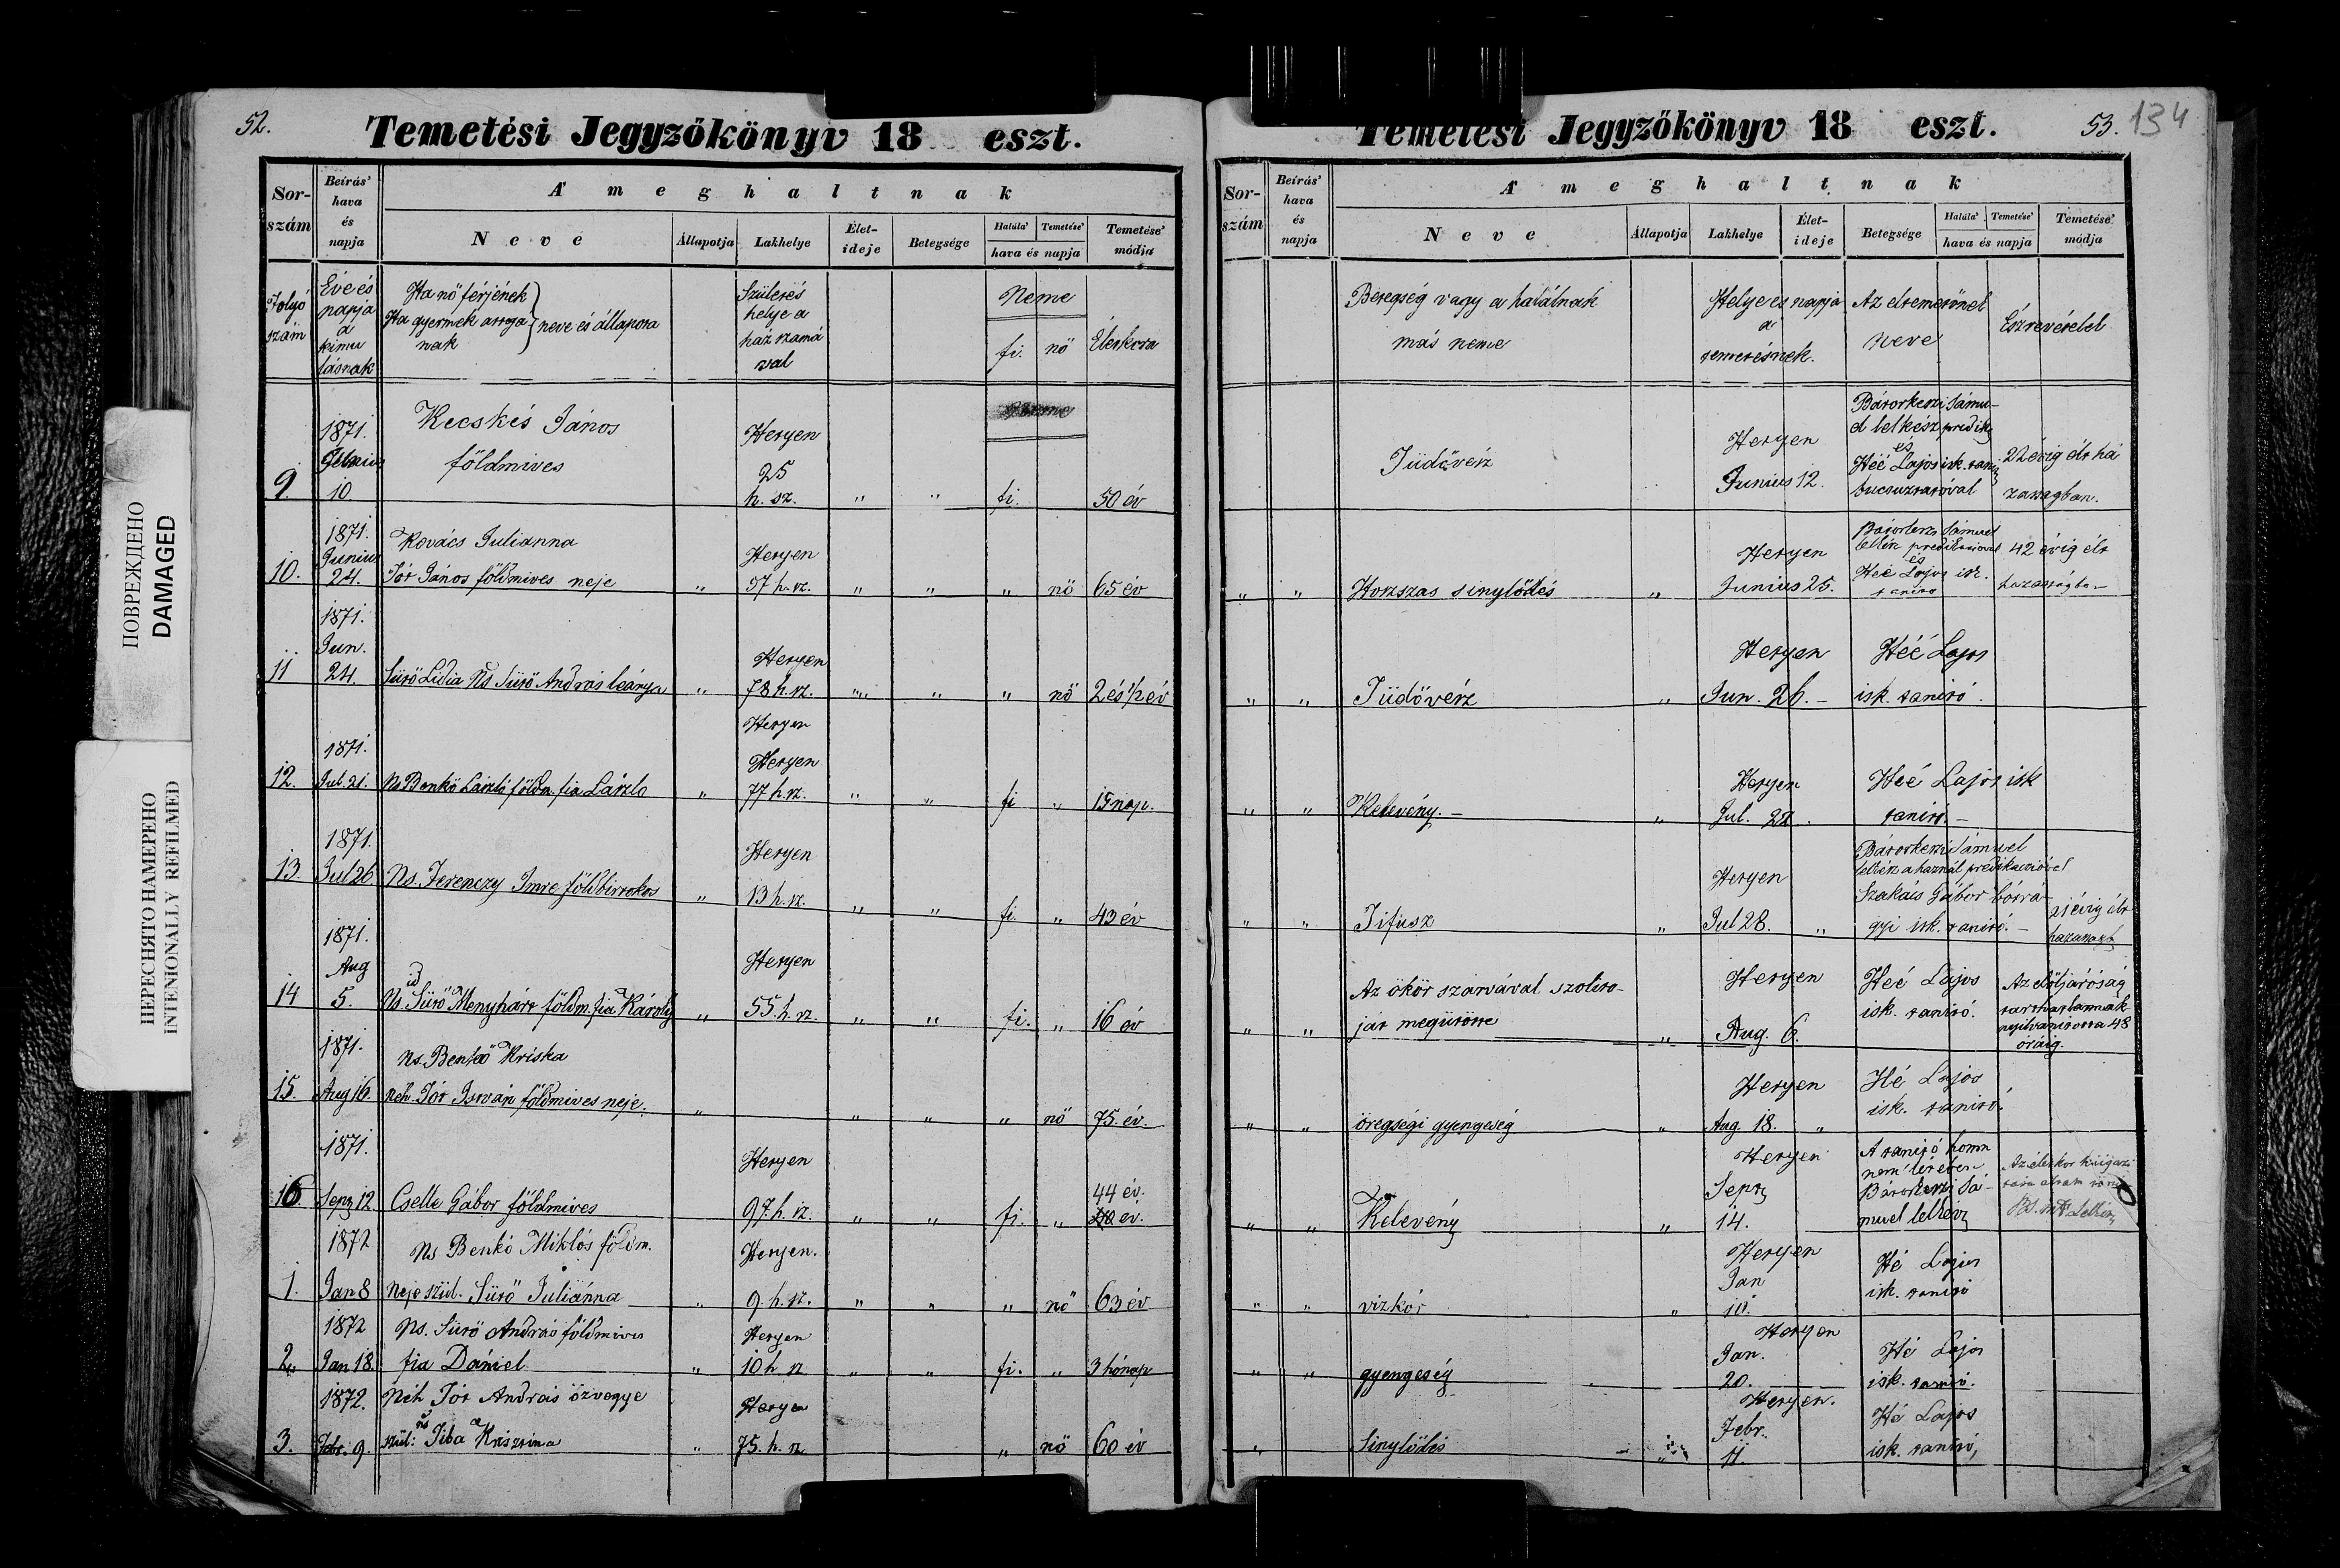 52.
Temetési Jegyzőkönyv 18 eszt.
Sor-
szám
Beírás'
hava
és
napja
A' meghaltnak
Neve
Állapotja
Lakhelye
Élet-
ideje
Betegsége
Halála'
Temetése'
hava és napja
Temetése'
módja
Folyó
szám
Éve és
napja
a
kimu
lásnak
Ha nő férjének
Ha gyermek attya
nak
neve és állapota
Születés
helye a
ház számá
val
Neme
fi. nő
Életkora
9.
1871.
Junius
10
Kecskés János
földmives
Hetyen
25
h. sz.
" " fi. 50 év
10.
1871.
Junius
24.
Kovács Julianna
Tót János földmives neje
Hetyen
97 h. sz.
" " " nő 65 év
11
1871.
Jun.
24.
Sütő Lidia Ns Sütő András leánya
Hetyen
78 h. sz.
" " " nő 2 és 1/2 év
Hetyen
12.
1871.
Jul. 21.
Ns Benkő László földm. fia László
Hetyen
77 h. sz.
" " fi " 15 nap.
13.
1871.
Jul 26
Ns. Ferenczy Imre földbirtokos
Hetyen
13 h. sz.
" " fi. " 43 év
14
1871.
Aug
5.
id
Ns. Sütő Menyhárt földm. fia Károly
Hetyen
55. h. sz.
" " fi. " 16 év
15.
1871.
Aug 16.
Ns. Benkő Kriska
néh. Tót István földmives neje.
" " " " nő 75. év.
16.
1871.
Sept 12
Cselle Gábor földmives
Hetyen
97. h. sz.
" " fi. "
44 év.
év.
1.
1872
Jan 8
Ns Benkő Miklós földm.
neje szül. Sütő Juliánna
Hetyen.
9. h. sz.
" " " nő 63 év
2.
1872
Jan 18.
Ns. Sütő András földmives
fia Dániel
Hetyen
10 h. sz
" " fi. " 3 hónap
3.
1872.
Febr. 9.
Néh Tót András özvegye
ns
szül: Tiba Krisztina
Hetyen
75. h. sz
" nő 60 év
Temetési Jegyzőkönyv 18 eszt.
53.
134
Sor-
szám
Beírás'
hava
és
napja
A' meghaltnak
Neve
Állapotja
Lakhelye
Élet-
ideje
Betegsége
Halála'
Temetése'
hava és napja
Temetése'
módja
Betegség vagy a halálnak
más neme
Helye és napja
a
temetésnek.
Az eltemetőnek
neve
Észrevételek
Tüdővész
Hetyen
Junius 12.
Bátorkeszi Sámu-
el lelkész predik
és
Héé Lajos isk. tanitó
bucsuztatóval
22 évig élt há
zasságban.
Hosszas sinylődés
Hetyen
Junius 25.
Bátorkeszi Sámuel
lelkész predikácioval
és
Héé Lajos isk.
tanitó
42 évig élt
házasságban
Tüdővész
Hetyen
Jun. 26.
Héé Lajos
isk. tanitó.
Kelevény.
Hetyen
Jul. 22.
Héé Lajos isk
tanitó.
Tifusz
Hetyen
Jul 28.
Bátorkeszi Sámuel
lelkész a háznál predikáczióval
Szakács Gábor
isk. tanitó.
21 évig élt
házasságb
Az ökör szarvával szoliro-
ját megütötte
Hetyen
Aug. 6.
Héé Lajos
isk. tanitó.
Az előljáróság
48
óráig.
öregségi gyengeség
Hetyen
Aug. 18.
Hé Lajos
isk. tanitó.
Kelevény
Hetyen
Sept
14.
A tanitó honn
nem létében
Bátorkeszi Sá-
muel lelkész
Az életkor kiigazi
tása általam tört
B. S. lelkész
vizkór
Hetyen
Jan
10.
Hé Lajos
isk. tanitó
gyengeség
Hetyen
Jan.
20.
Hé Lajos
isk. tanitó.
Sinylődés
Hetyen.
Febr.
11.
Hé Lajos
isk. tanitó,
ПОВРЕЖДЕНО
DAMAGED
ПЕРЕСНЯТО НАМЕРЕНО
INTENIONALLY REFILMED